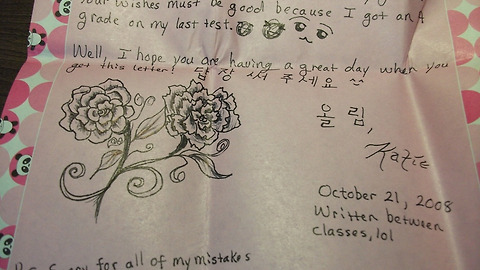 Your wishes must be good because I got an A
grade on my last test.
Well, I hope you are having a great day when you
get this letter! 답장 써 주세요 ^^
올림,
Katie
October 21, 2008
Written between
classes, lol
P.S. Sorry for all of my mistakes